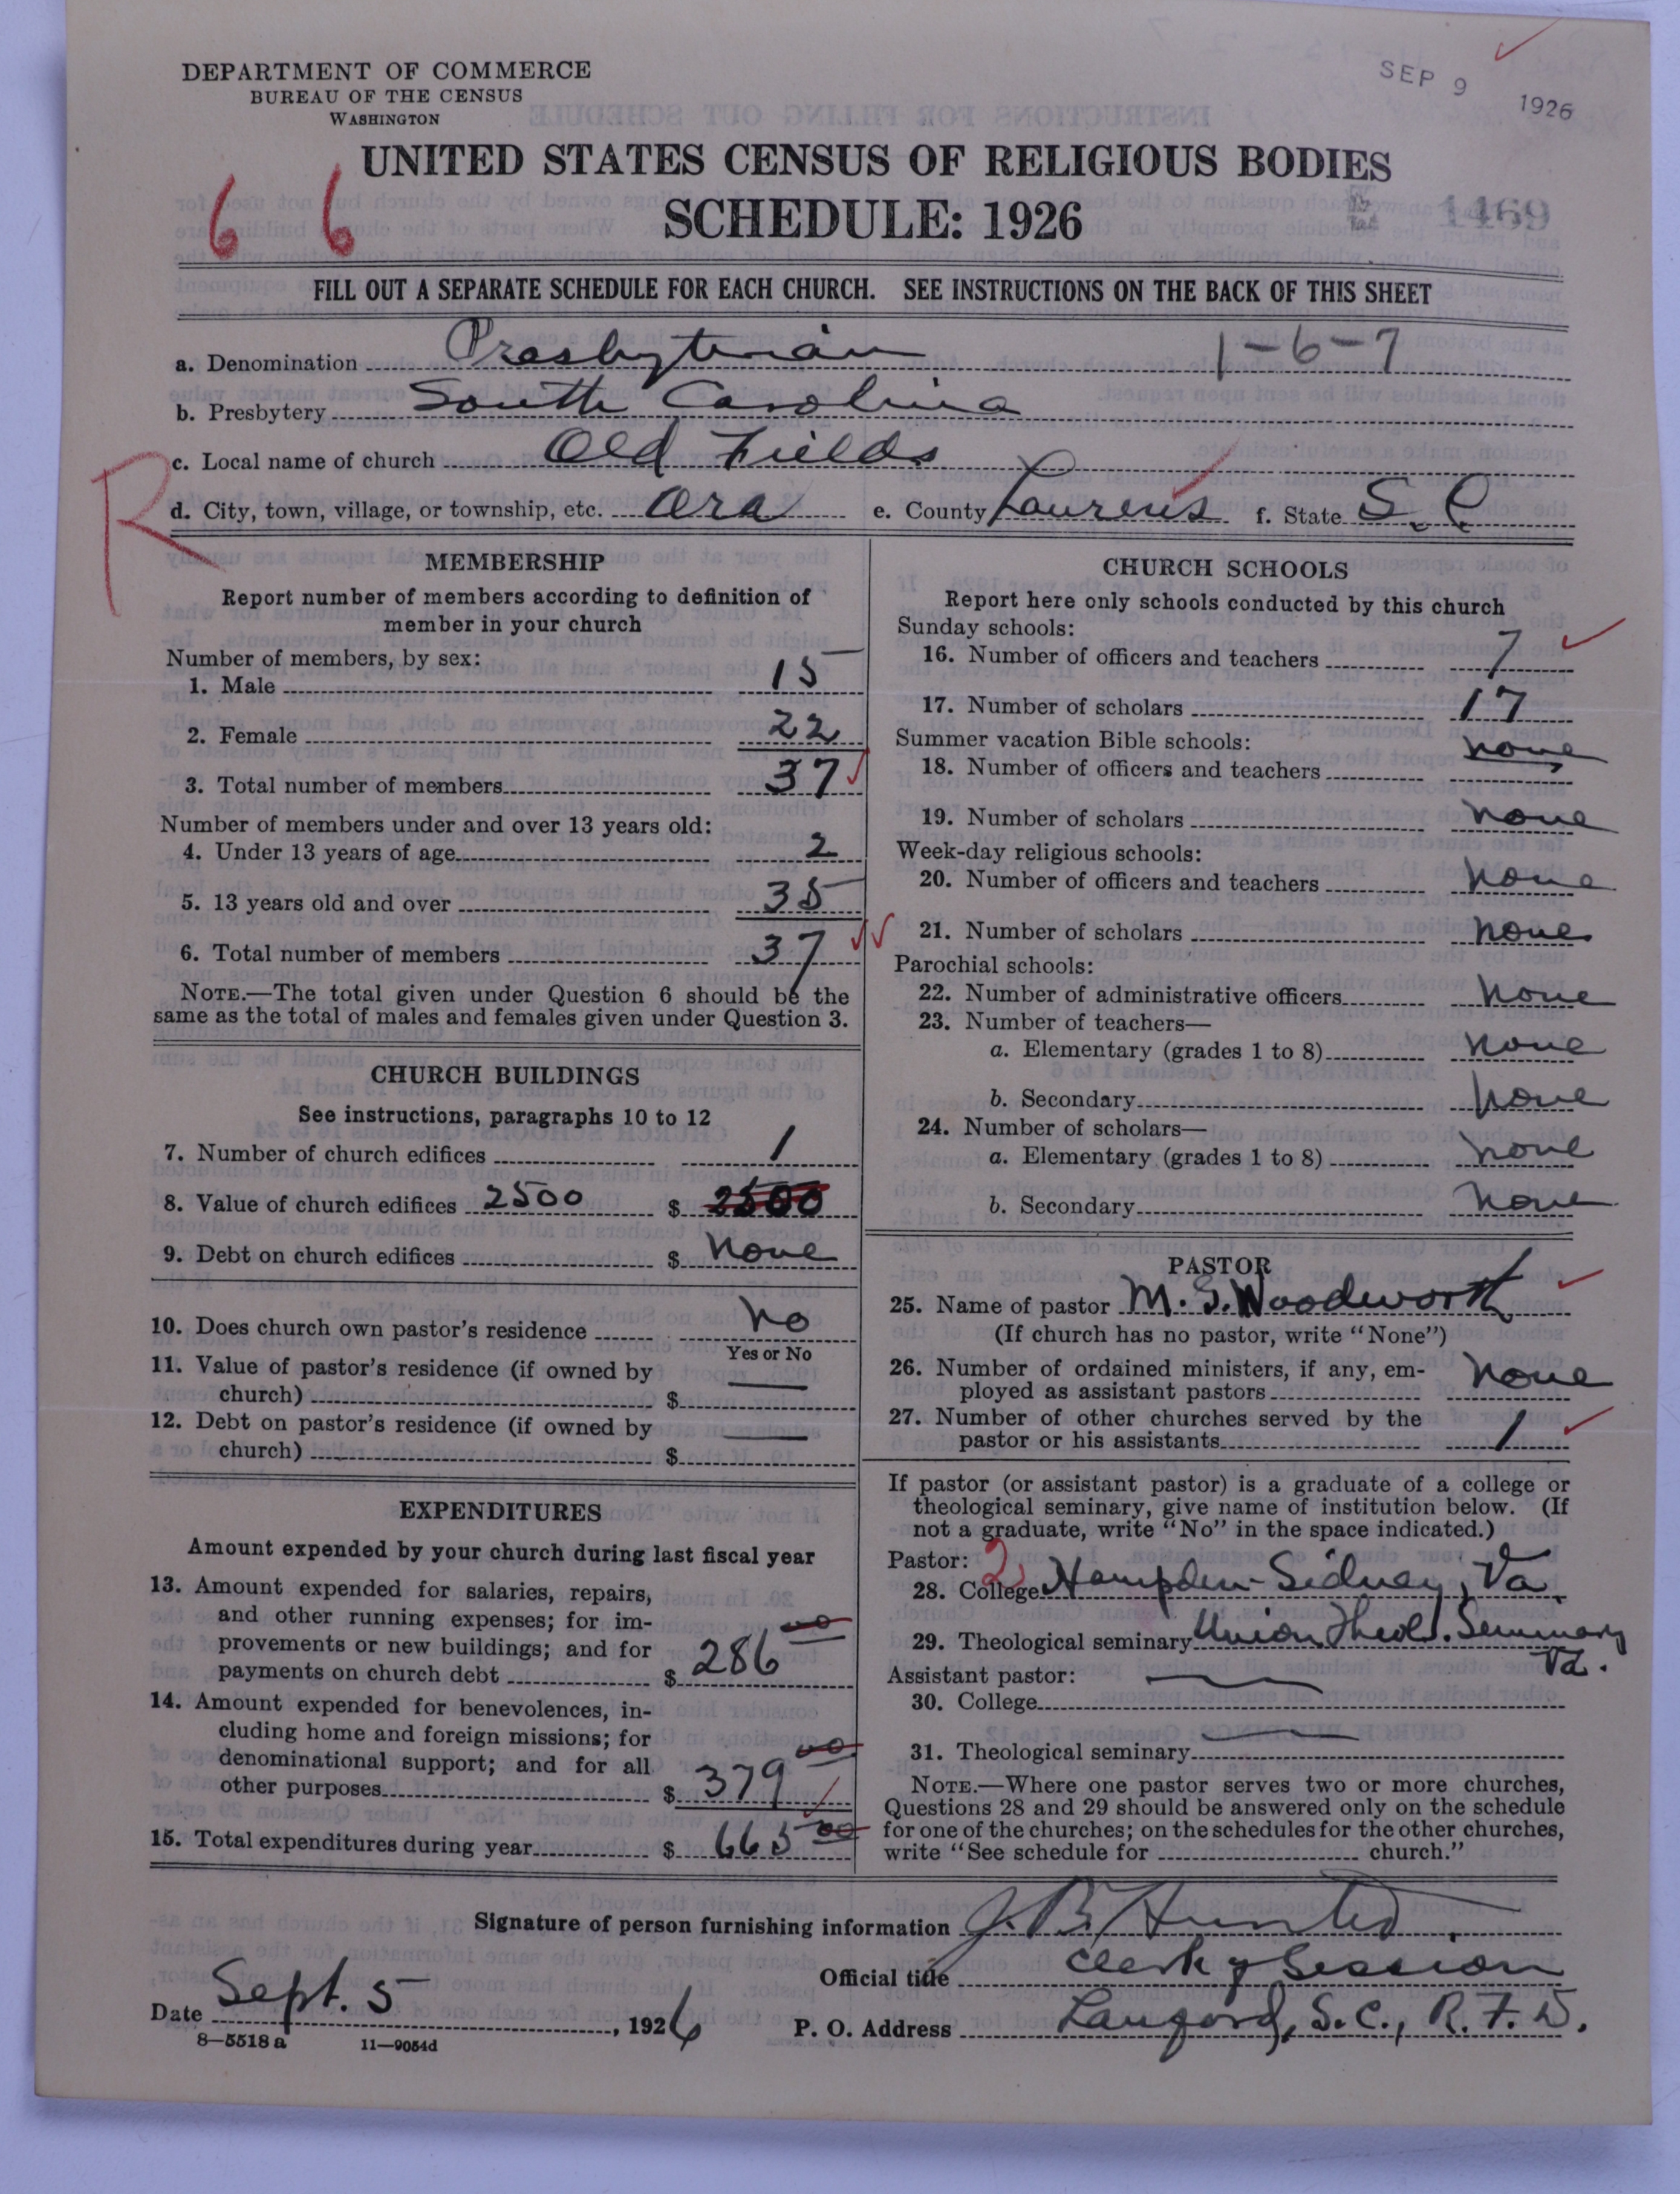 DEPARTMENT OF COMMERCE
BUREAU OF THE CENSUS
WASHINGTON
SEP 9 1926
UNITED STATES CENSUS OF RELIGIOUS BODIES
SCHEDULE: 1926
6 6
1469
FILL OUT A SEPARATE SCHEDULE FOR EACH CHURCH. SEE INSTRUCTIONS ON THE BACK OF THIS SHEET
a. Denomination Presbyterian 1-6-7
b. Presbytery South Carolina
c. Local name of church Old Fields
R
d. City, town, village, or township, etc. Ora e. County Laurens f. State S. C.
MEMBERSHIP
Report number of members according to definition of
member in your church
Number of members, by sex:
1. Male 15
2. Female 22
3. Total number of members 37
Number of members under and over 13 years old:
4. Under 13 years of age 2
5. 13 years old and over 35
6. Total number of members 37
NOTE.—The total given under Question 6 should be the
same as the total of males and females given under Question 3.
CHURCH BUILDINGS
See instructions, paragraphs 10 to 12
7. Number of church edifices 1
8. Value of church edifices 2500 $ 2500
9. Debt on church edifices $ none
10. Does church own pastor's residence no
Yes or No
11. Value of pastor's residence (if owned by
church) $ —
12. Debt on pastor's residence (if owned by
church) $ —
EXPENDITURES
Amount expended by your church during last fiscal year
13. Amount expended for salaries, repairs,
and other running expenses; for im-
provements or new buildings; and for
payments on church debt $ 286 00
14. Amount expended for benevolences, in-
cluding home and foreign missions; for
denominational support; and for all
other purposes $ 379 00
15. Total expenditures during year $ 665 00
CHURCH SCHOOLS
Report here only schools conducted by this church
Sunday schools:
16. Number of officers and teachers 7
17. Number of scholars 17
Summer vacation Bible schools:
18. Number of officers and teachers none
19. Number of scholars none
Week-day religious schools:
20. Number of officers and teachers none
21. Number of scholars none
Parochial schools:
22. Number of administrative officers none
23. Number of teachers—
a. Elementary (grades 1 to 8) none
b. Secondary none
24. Number of scholars—
a. Elementary (grades 1 to 8) none
b. Secondary none
PASTOR
25. Name of pastor M. S. Woodworth
(If church has no pastor, write "None")
26. Number of ordained ministers, if any, em-
ployed as assistant pastors none
27. Number of other churches served by the
pastor or his assistants 1
If pastor (or assistant pastor) is a graduate of a college or
theological seminary, give name of institution below. (If
not a graduate, write "No" in the space indicated.)
Pastor: 2
28. College Hampden-Sidney, Va.
29. Theological seminary Union Theol. Seminary
Va.
Assistant pastor: —
30. College
31. Theological seminary —
NOTE.—Where one pastor serves two or more churches,
Questions 28 and 29 should be answered only on the schedule
for one of the churches; on the schedules for the other churches,
write "See schedule for church."
Signature of person furnishing information J. B. Hunter
Official title Clerk of Session
Date Sept. 5, 1926 P. O. Address Lanford, S.C., R.F.D.
8-5518 a 11-9054d